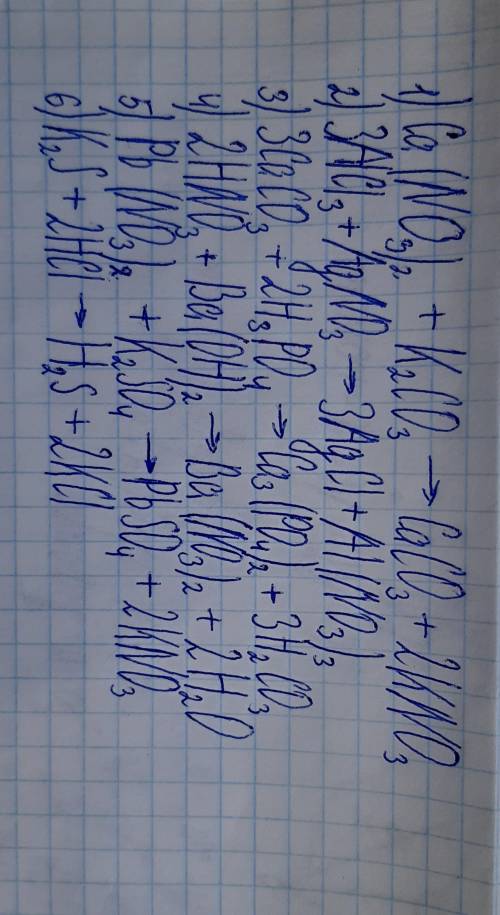 1) Ca(NO₃)₂ + K₂CO₃ → CaCO₃ + 2KNO₃
2) 3AlCl₃ + AgNO₃ → 3AgCl + Al(NO₃)₃
3) 3CaCO₃ + 2H₃PO₄ → Ca₃(PO₄)₂ + 3H₂CO₃
4) 2HNO₃ + Ba(OH)₂ → Ba(NO₃)₂ + 2H₂O
5) Pb(NO₃)₂ + K₂SO₄ → PbSO₄ + 2KNO₃
6) K₂S + 2HCl → H₂S + 2KCl